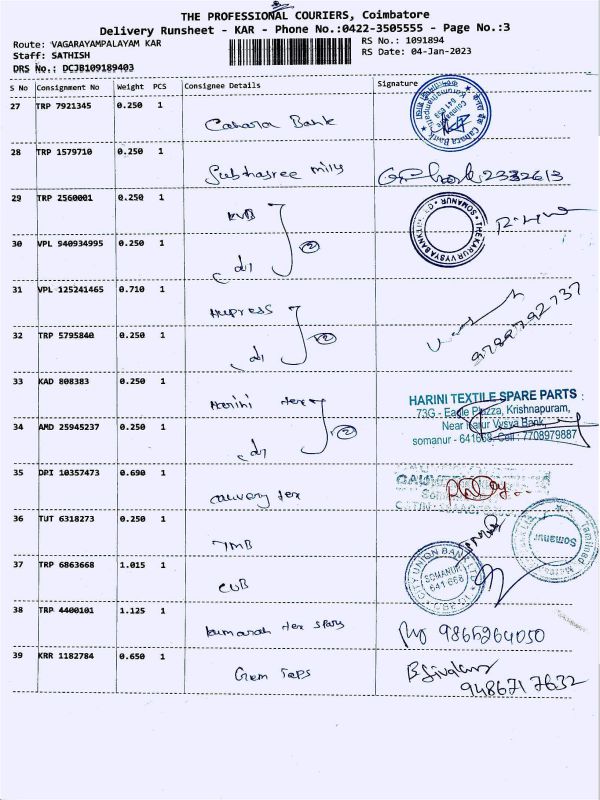 THE PROFESSIONAL COURIERS, Coimbatore
Delivery Runsheet - KAR - Phone No.:0422-3505555 - Page No.:3
Route: VAGARAYAMPALAYAM KAR
RS No.: 1091894
Staff: SATHISH
RS Date: 04-Jan-2023
DRS No.: DCJB109189403
S No Consignment No Weight PCS Consignee Details Signature
27 TRP 7921345 0.250 1 Canara Bank
28 TRP 1579710 0.250 1 Subhasree mills
29 TRP 2560001 0.250 1 KVB
THE KARUR VYSYA BANK LTD. SOMANUR
30 VPL 940934995 0.250 1 2
31 VPL 125241465 0.710 1
9789792737
32 TRP 5795840 0.250 1 2
33 KAD 808383 0.250 1 Harini tex
HARINI TEXTILE SPARE PARTS
73G - Eagle Plazza, Krishnapuram,
Near Karur Vysya Bank,
somanur - 641668. Cell : 7708979887
34 AMD 25945237 0.250 1 2
35 DPI 10357473 0.690 1 cauvery tex
36 TUT 6318273 0.250 1 TMB
Somanur
37 TRP 6863668 1.015 1 CUB
CITY UNION BANK LTD.
SOMANUR
641 668
38 TRP 4400101 1.125 1 kumaran tex
9865264050
39 KRR 1182784 0.650 1 Gem Taps
9486717632